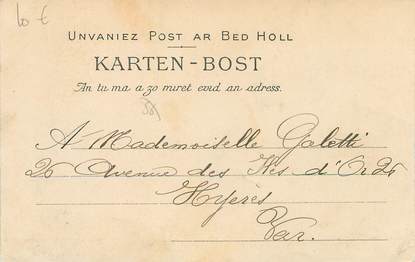 10 €
UNVANIEZ POST AR BED HOLL
KARTEN-BOST
An tu ma a zo miret evid an adress.
A Mademoiselle Galetti
26 Avenue des Iles d'Or 26
Hyères
Var.